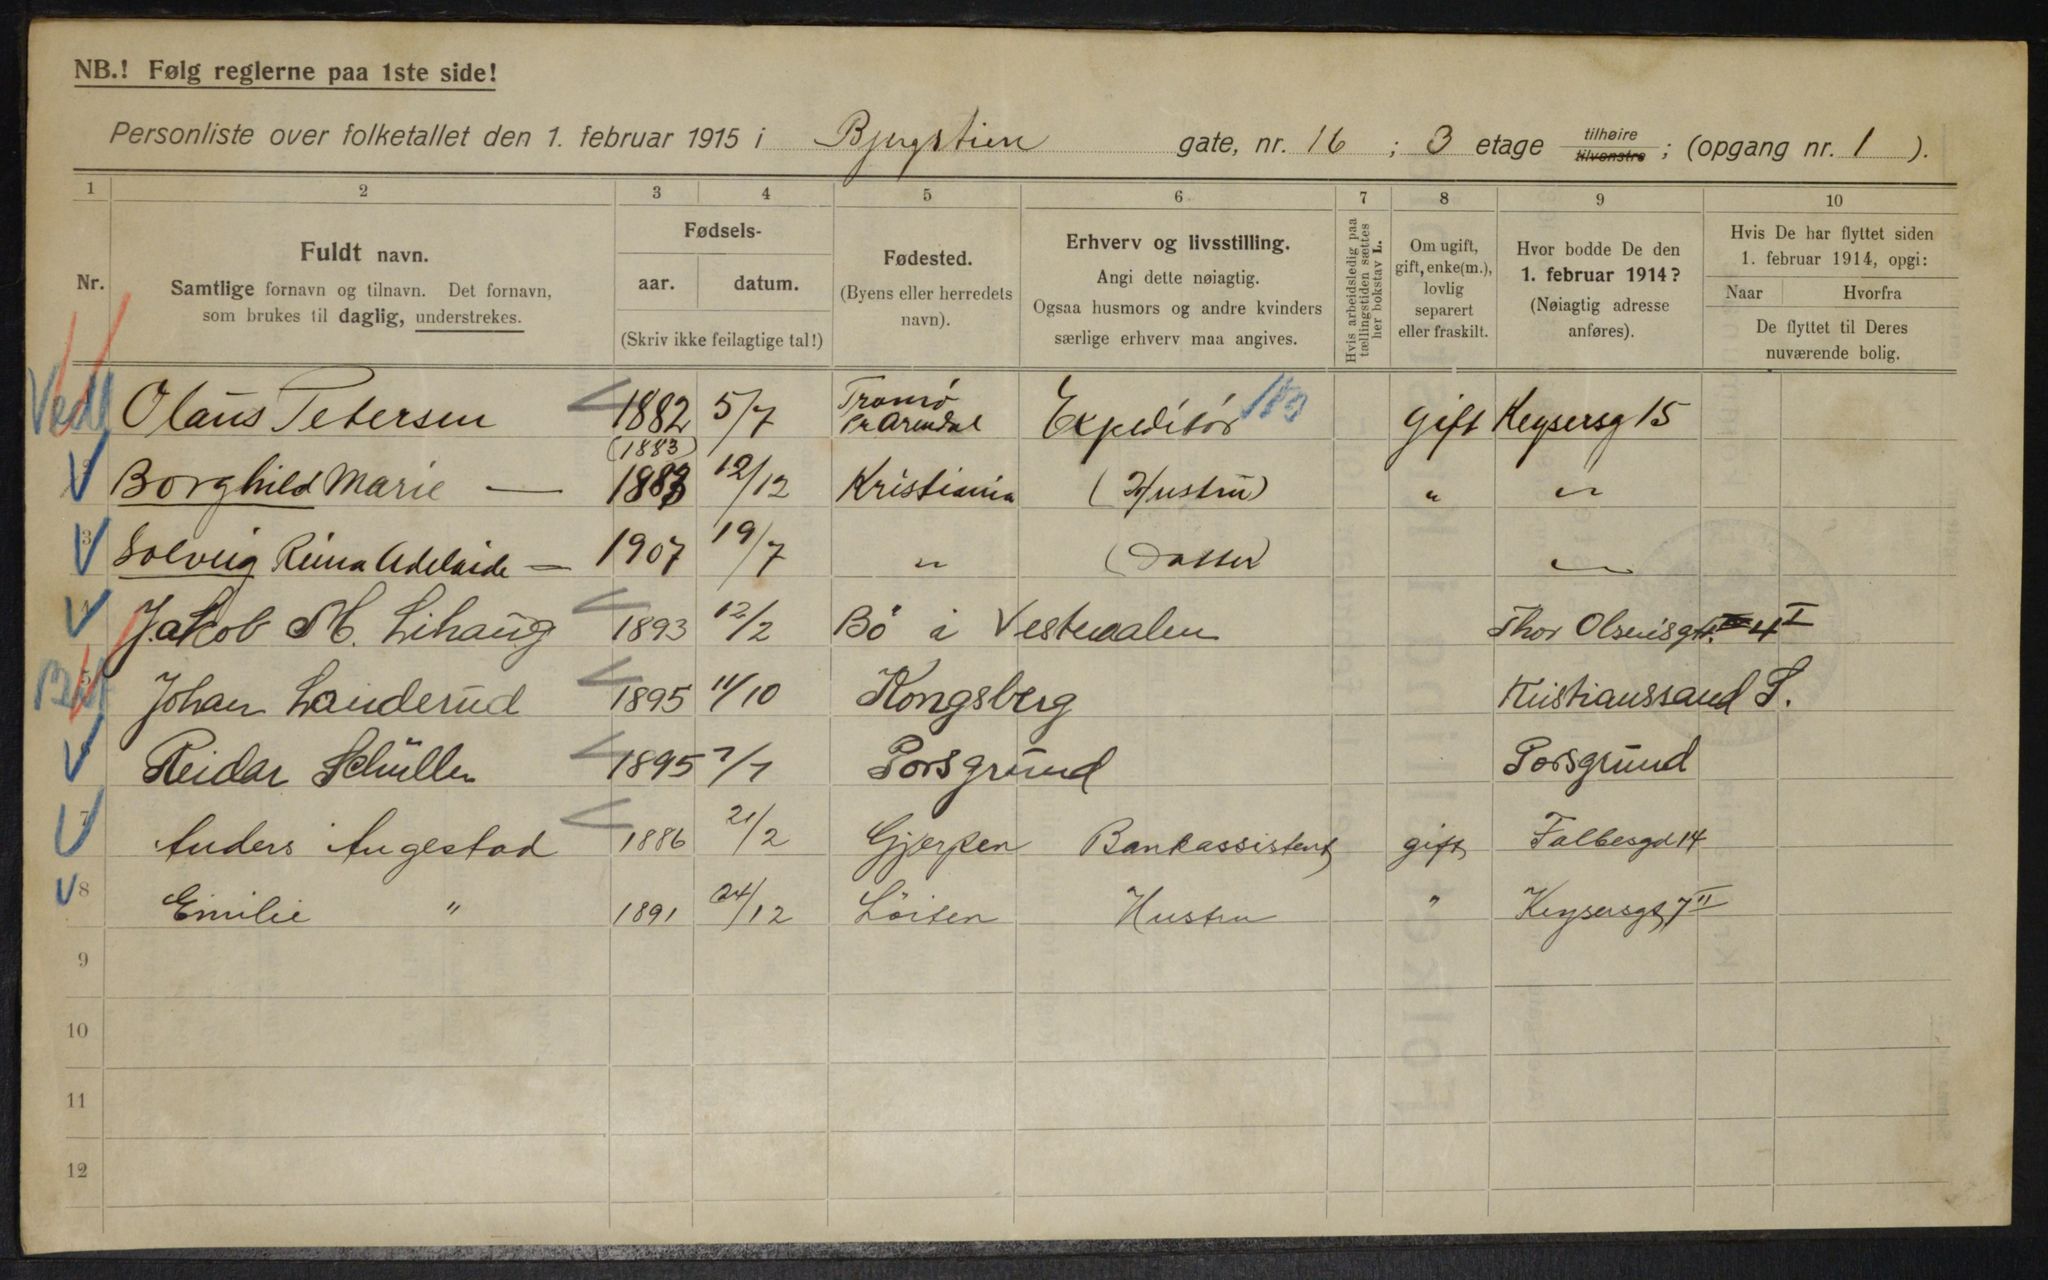 NB.! Følg reglerne paa 1ste side!
Personliste over folketallet den 1. februar 1915 i Bjergstien gate, nr. 16 ; 3 etage tilhøire tilvenstre ; (opgang nr. 1 ).
1 2 3 4 5 6 7 8 9 10
Nr.
Fuldt navn.
Samtlige fornavn og tilnavn. Det fornavn,
som brukes til daglig, understrekes.
Fødsels-
aar. datum.
(Skriv ikke feilagtige tal!)
Fødested.
(Byens eller herredets
navn).
Erhverv og livsstilling.
Angi dette nøiagtig.
Ogsaa husmors og andre kvinders
særlige erhverv maa angives.
Hvis arbeidsledig paa
tællingstiden sættes
her bokstav L.
Om ugift,
gift, enke(m.),
lovlig
separert
eller fraskilt.
Hvor bodde De den
1. februar 1914?
(Nøiagtig adresse
anføres).
Hvis De har flyttet siden
1. februar 1914, opgi:
Naar Hvorfra
De flyttet til Deres
nuværende bolig.
Olaus Petersen 1882 5/7 Tromø pr Arendal Expeditör gift Keysersg 15
(1883)
2 Borghild Marie — 1883 12/12 Kristiania (Hustru) " "
3 Solveig Reina Adelaide — 1907 19/7 " (Datter) "
4 Jakob M. Lihaug 1893 12/2 Bö i Vesteraalen Thor Olsensgt. 4 I
5 Johan Landerud 1895 11/10 Kongsberg Kristianssand S.
6 Reidar Schüller 1895 7/1 Porsgrund Porsgrund
7 Anders Augestad 1886 21/2 Gjerpen Bankassistent gift Falbesgd 14
8 Emilie " 1891 24/12 Löiten Hustru " Keysersgt 7 II
9
10
11
12